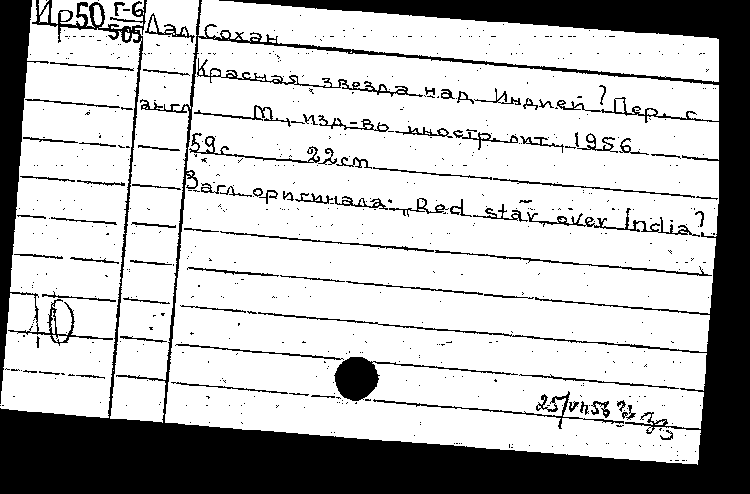 Ир50 Г-6/505 Лал, Сохан
Красная звезда над Индией? Пер. с
англ. М., изд-во иностр. лит., 1956.
59с. 22см
Загл. оригинала: Red star over India?
10
25/VII56